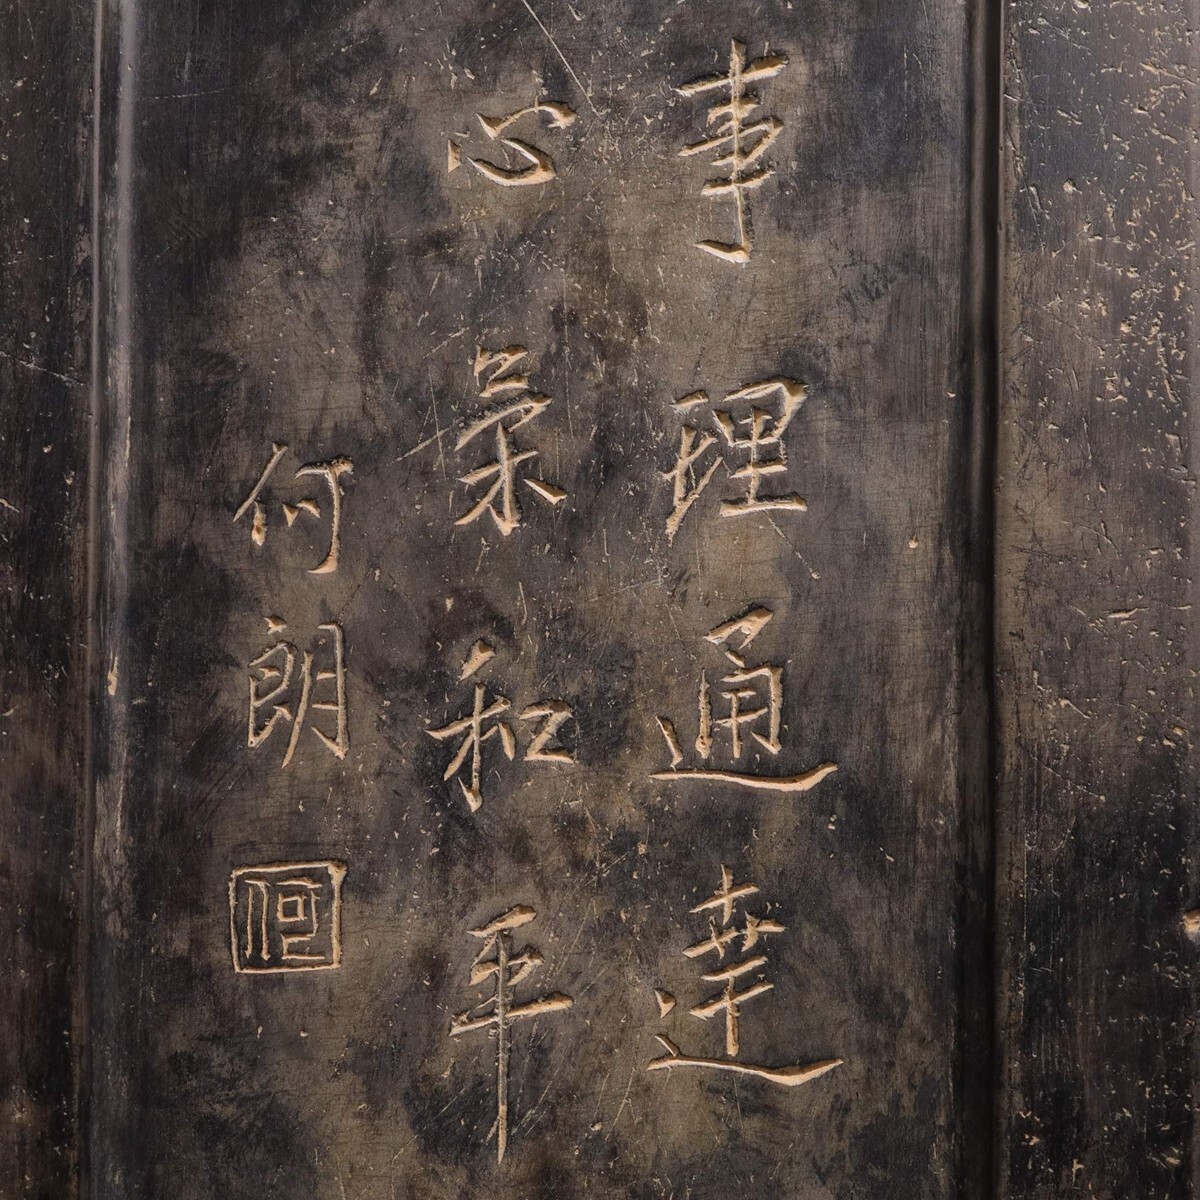 事理通達
心氣和平
何朗